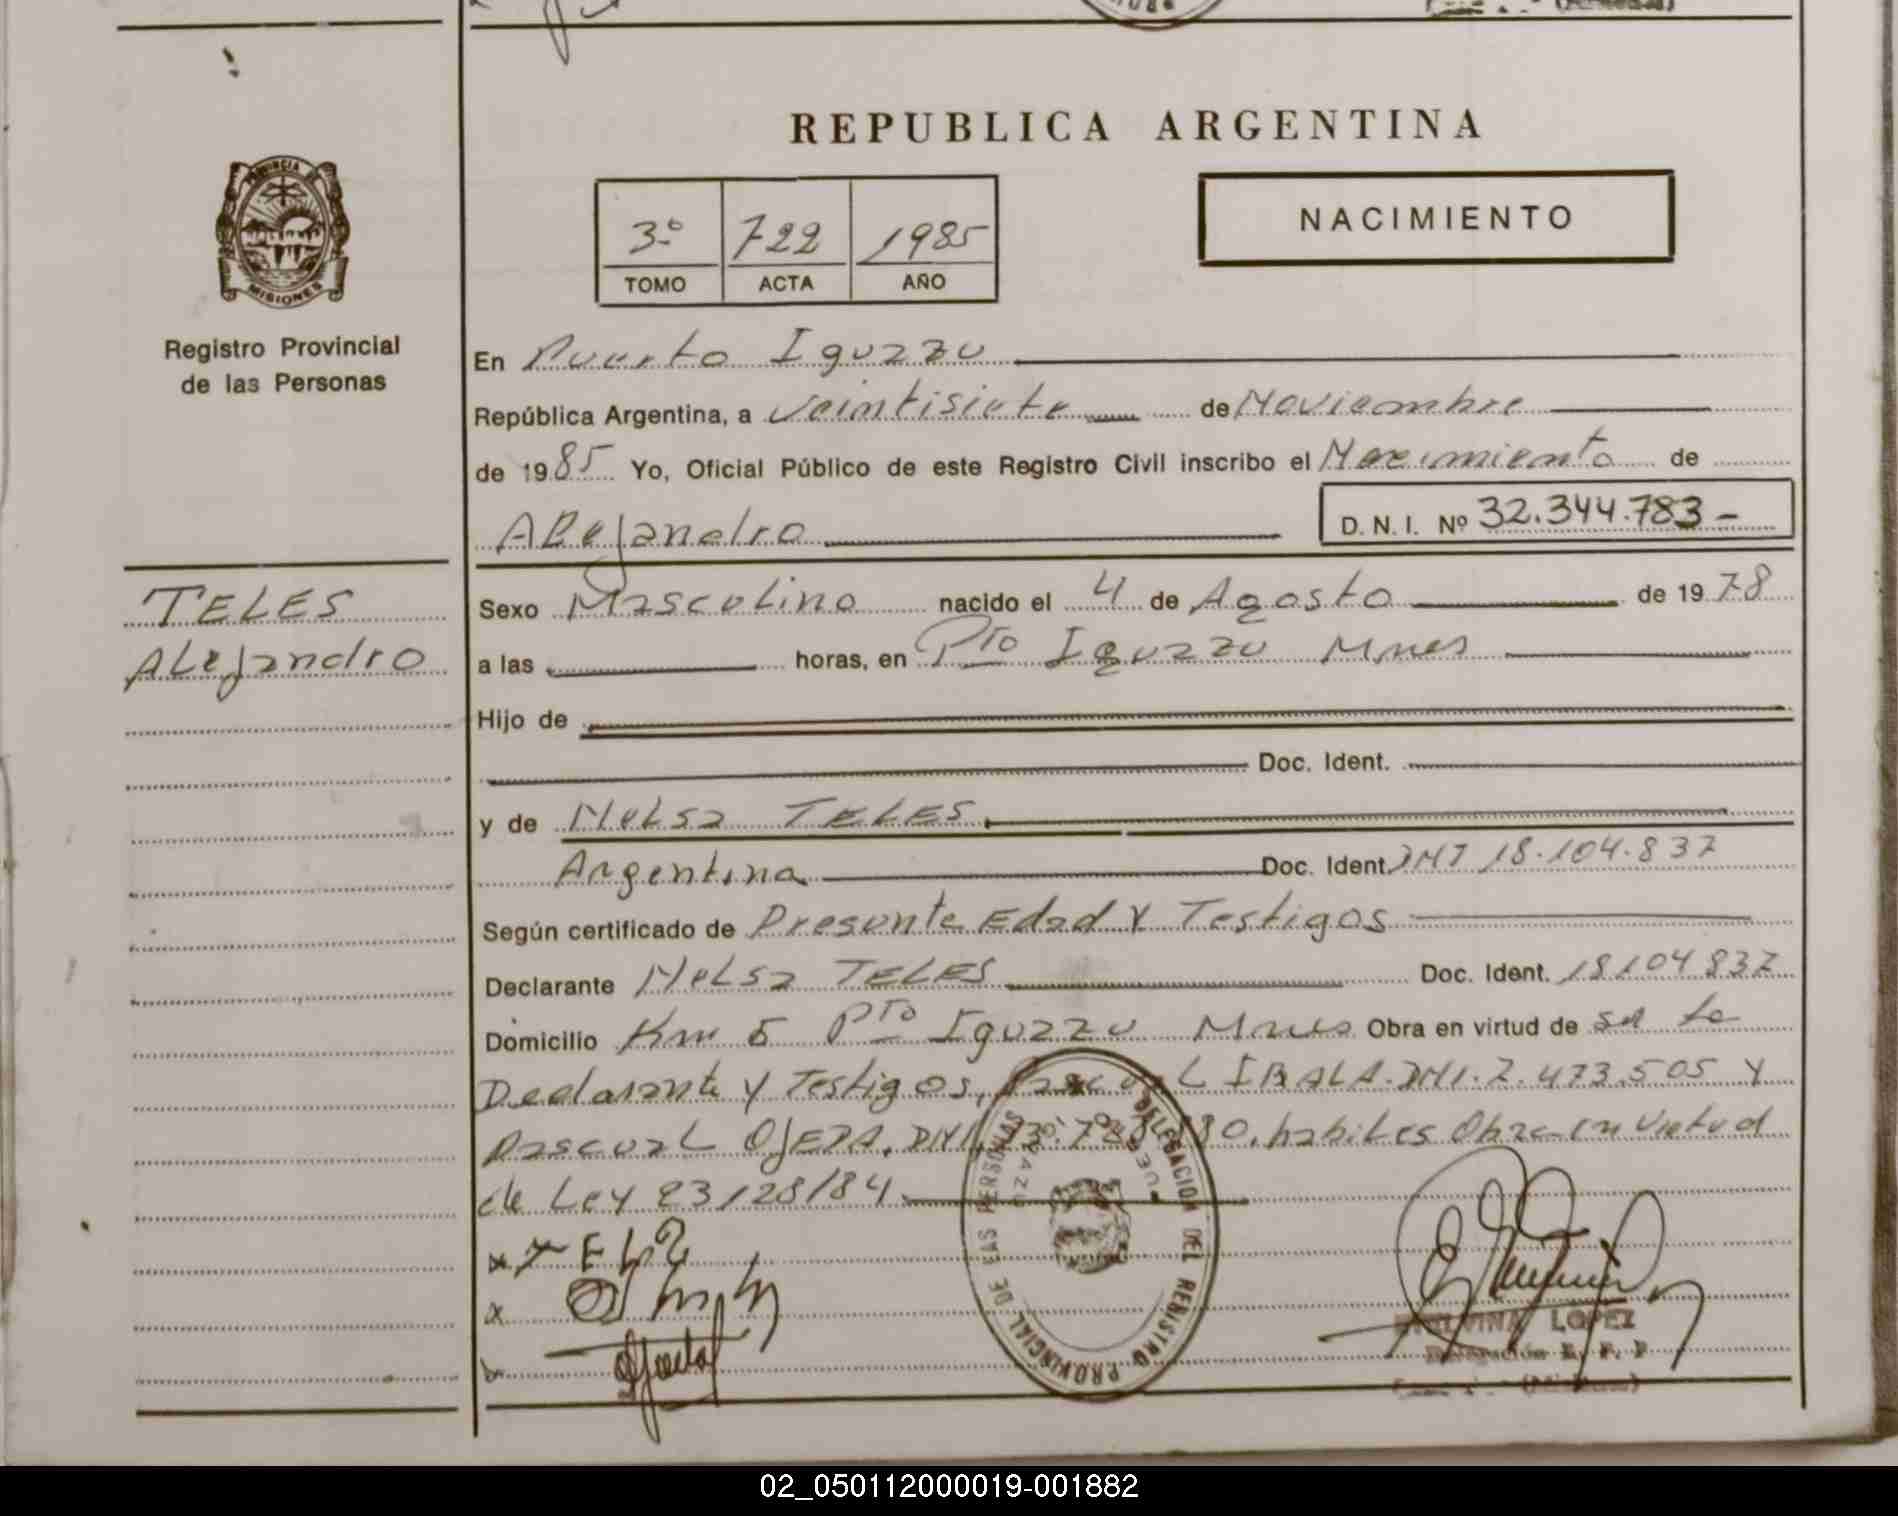 REPUBLICA ARGENTINA
PROVINCIA DE
MISIONES
Registro Provincial
de las Personas
3º 722 1985
TOMO ACTA AÑO
NACIMIENTO
En Puerto Iguazu
República Argentina, a veintisiete de Noviembre
de 1985 Yo, Oficial Público de este Registro Civil inscribo el Nacimiento de
Alejandro
D. N. I. Nº 32.344.783-
TELES
Alejandro
Sexo Masculino nacido el 4 de Agosto de 1978
a las horas, en Pto Iguazu Mnes
Hijo de
Doc. Ident.
y de Nelsa TELES
Argentina Doc. Ident. DNI 18.104.837
Según certificado de Presunta Edad y Testigos
Declarante Nelsa TELES Doc. Ident. 18104837
Domicilio Km 5 Pto Iguazu Mnes Obra en virtud de
Declarante y Testigos, Pascual IBALA. DNI. 7.473.505 y
Pascual OJEDA. DNI habiles Obra en virtud
de Ley 23128/84
DELEGACION DEL REGISTRO PROVINCIAL DE LAS PERSONAS
LOPEZ
02_050112000019-001882